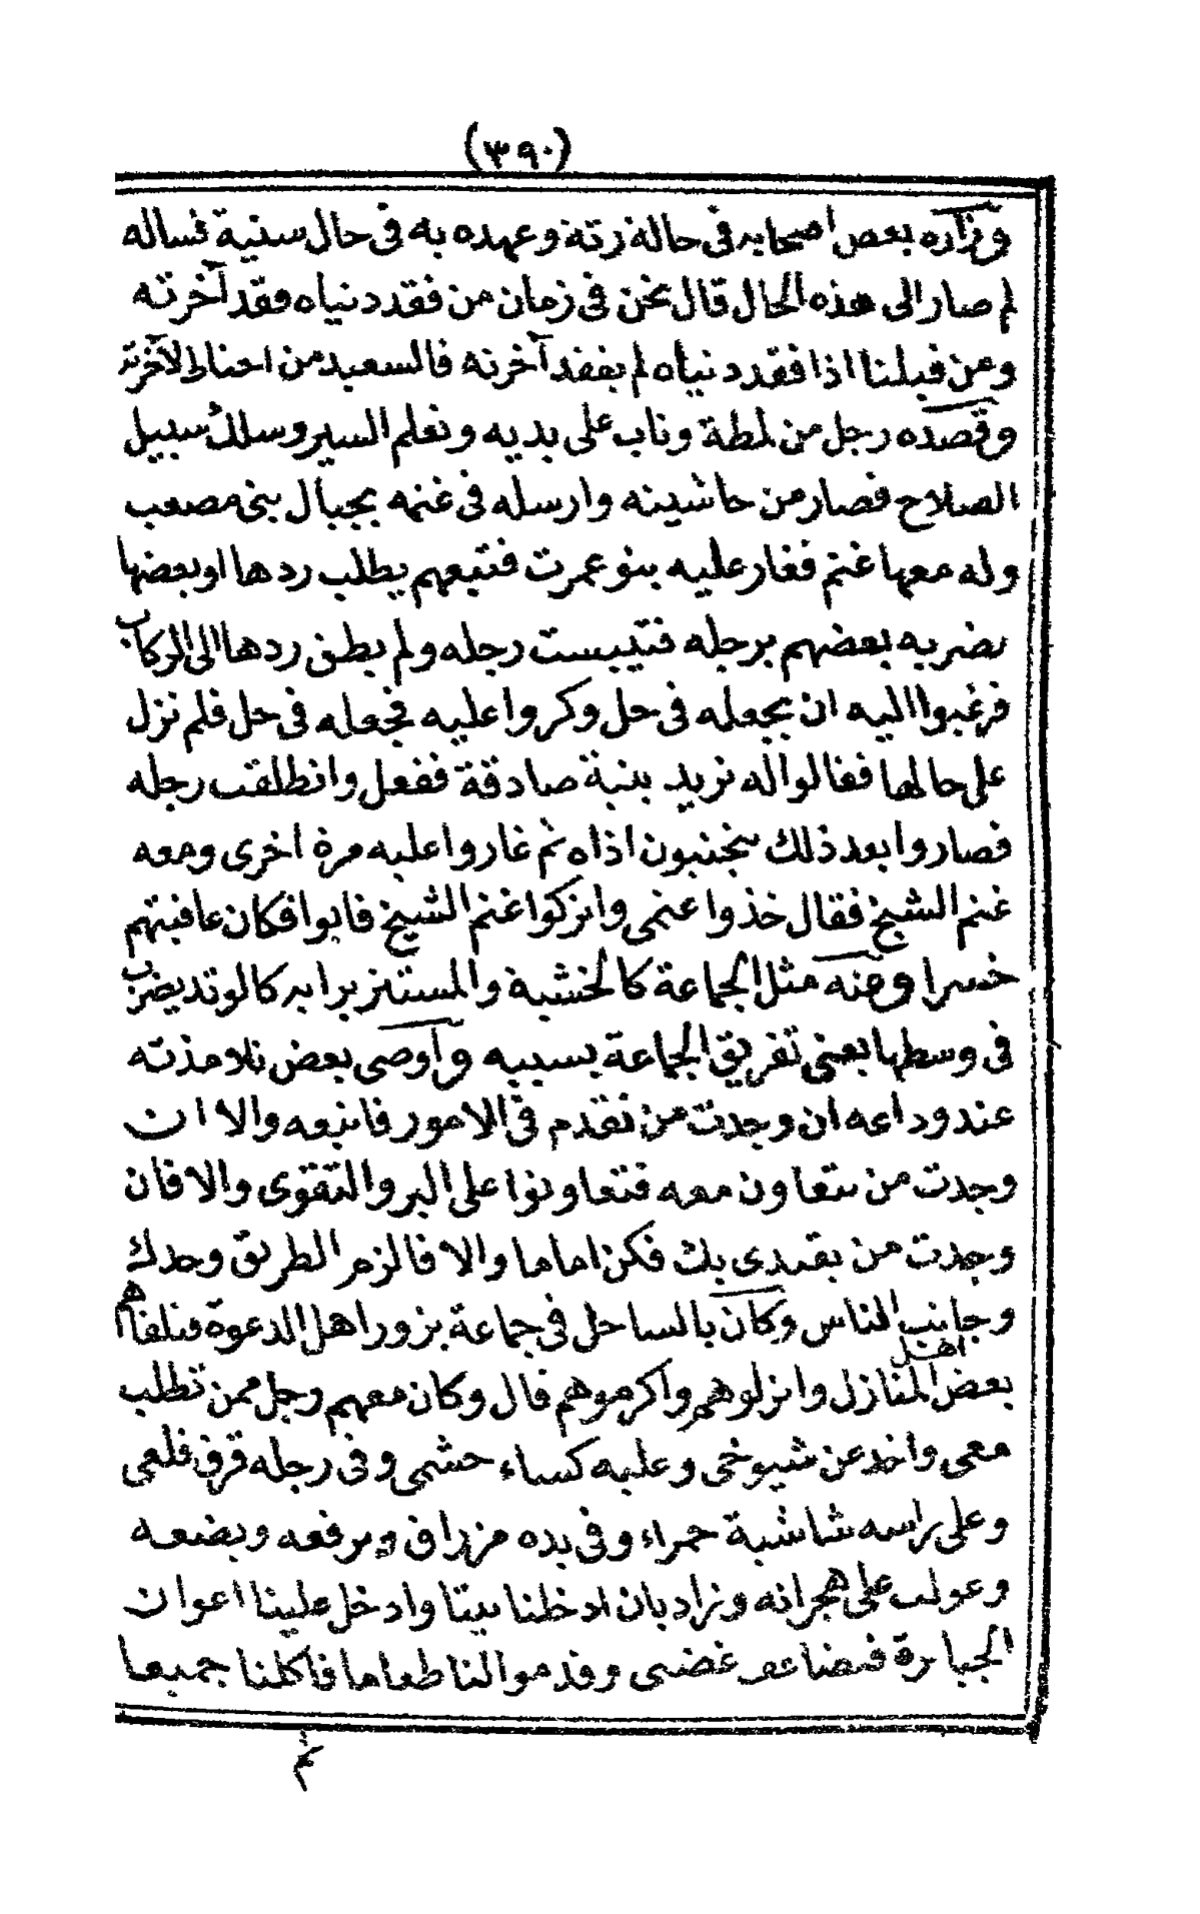 (٣٩٠)
وزاره بعض اصحابه في حالة رثة وعهده به في حال سنية فساله
لم صار الى هذه الحال قال نحن في زمان من فقد دنياه فقد آخرته
ومن قبلنا اذا فقد دنياه لم يفقد آخرته فالسعيد من احتاط لآخرته
وقصده رجل من لمطة وتاب على يديه وتعلم السير وسلك سبيل
الصلاح فصار من حاشيته وارسله في غنمه بجبال بني مصعب
وله معها غنم فغار عليه بنو عمرت فتبعهم يطلب ردها او بعضها
يضربه بعضهم برجله فتيبست رجله ولم يطق ردها الى الركاب
فرغبوا اليه ان يجعله في حل وكروا عليه فجعله في حل فلم تزل
على حالها فقالوا له نريد بنية صادقة ففعل وانطلقت رجله
فصاروا بعد ذلك يجتنبون اذاه ثم غاروا عليه مرة اخرى ومعه
غنم الشيخ فقال خذوا غنمي واتركوا غنم الشيخ فابوا فكان عاقبتهم
خسرا وعنه مثل الجماعة كالخشبة والمستتر برايه كالوتد يضرب
في وسطها يعني تفريق الجماعة بسببه واوصى بعض تلامذته
عند وداعه ان وجدت من تقدم في الامور فاتبعه والا ان
وجدت من تتعاون معه فتعاونوا على البر والتقوى والا فان
وجدت من يقتدى بك فكن اماما والا فالزم الطريق وحدك
وجانب الناس وكان بالساحل في جماعة يزور اهل الدعوة فتلقاهم
اهل
بعض المنازل وانزلوهم واكرموهم قال وكان معهم رجل ممن تطلب
معي واخذ عن شيوخي وعليه كساء حشمي وفي رجله قرق فلعي
وعلى راسه شاشية حمراء وفي يده مزراق ويرفعه ويضعه
وعولت على هجرانه وزاد بان ادخلنا بيتا وادخل علينا اعوان
الجبابرة فتضاعف غضبي وقدموا لنا طعاما فاكلنا جميعا
ثم